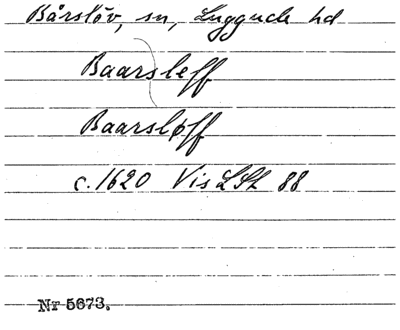 Bårslöv, sn, Luggude hd
Baarsleff
Baarsløff
c. 1620 Vis LSk 88
Nr 5673.